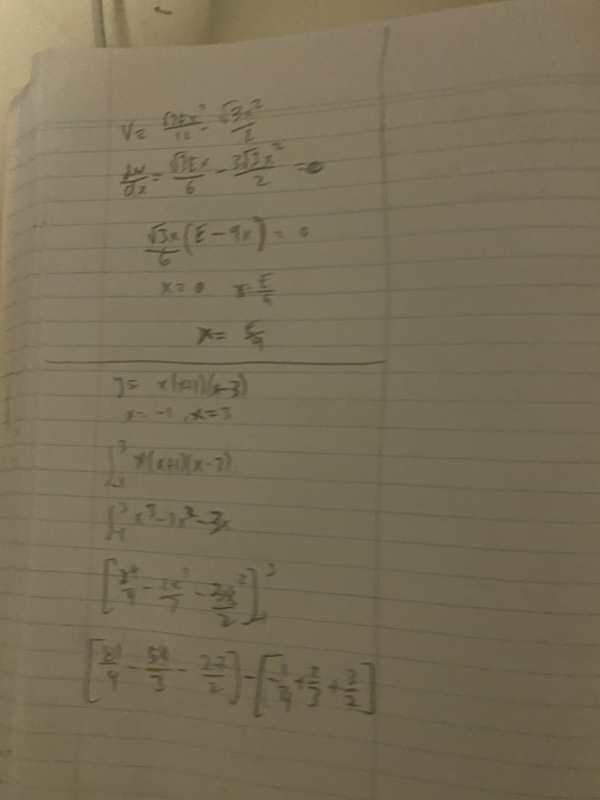 V = √3Ex²/12 - √3x²/2
dv/dx = √3Ex/6 - 3√3x²/2 = 0
√3x/6 (E - 9x) = 0
x = 0 x = E/9
x = E/9
y = x(x+1)(x-3)
x = -1, x = 3
∫₋₁³ x(x+1)(x-3)
∫₋₁³ x³ - 2x² - 3x
[x⁴/4 - 2x³/3 - 3x²/2]₋₁³
[81/4 - 54/3 - 27/2] - [-1/4 + 2/3 + 3/2]